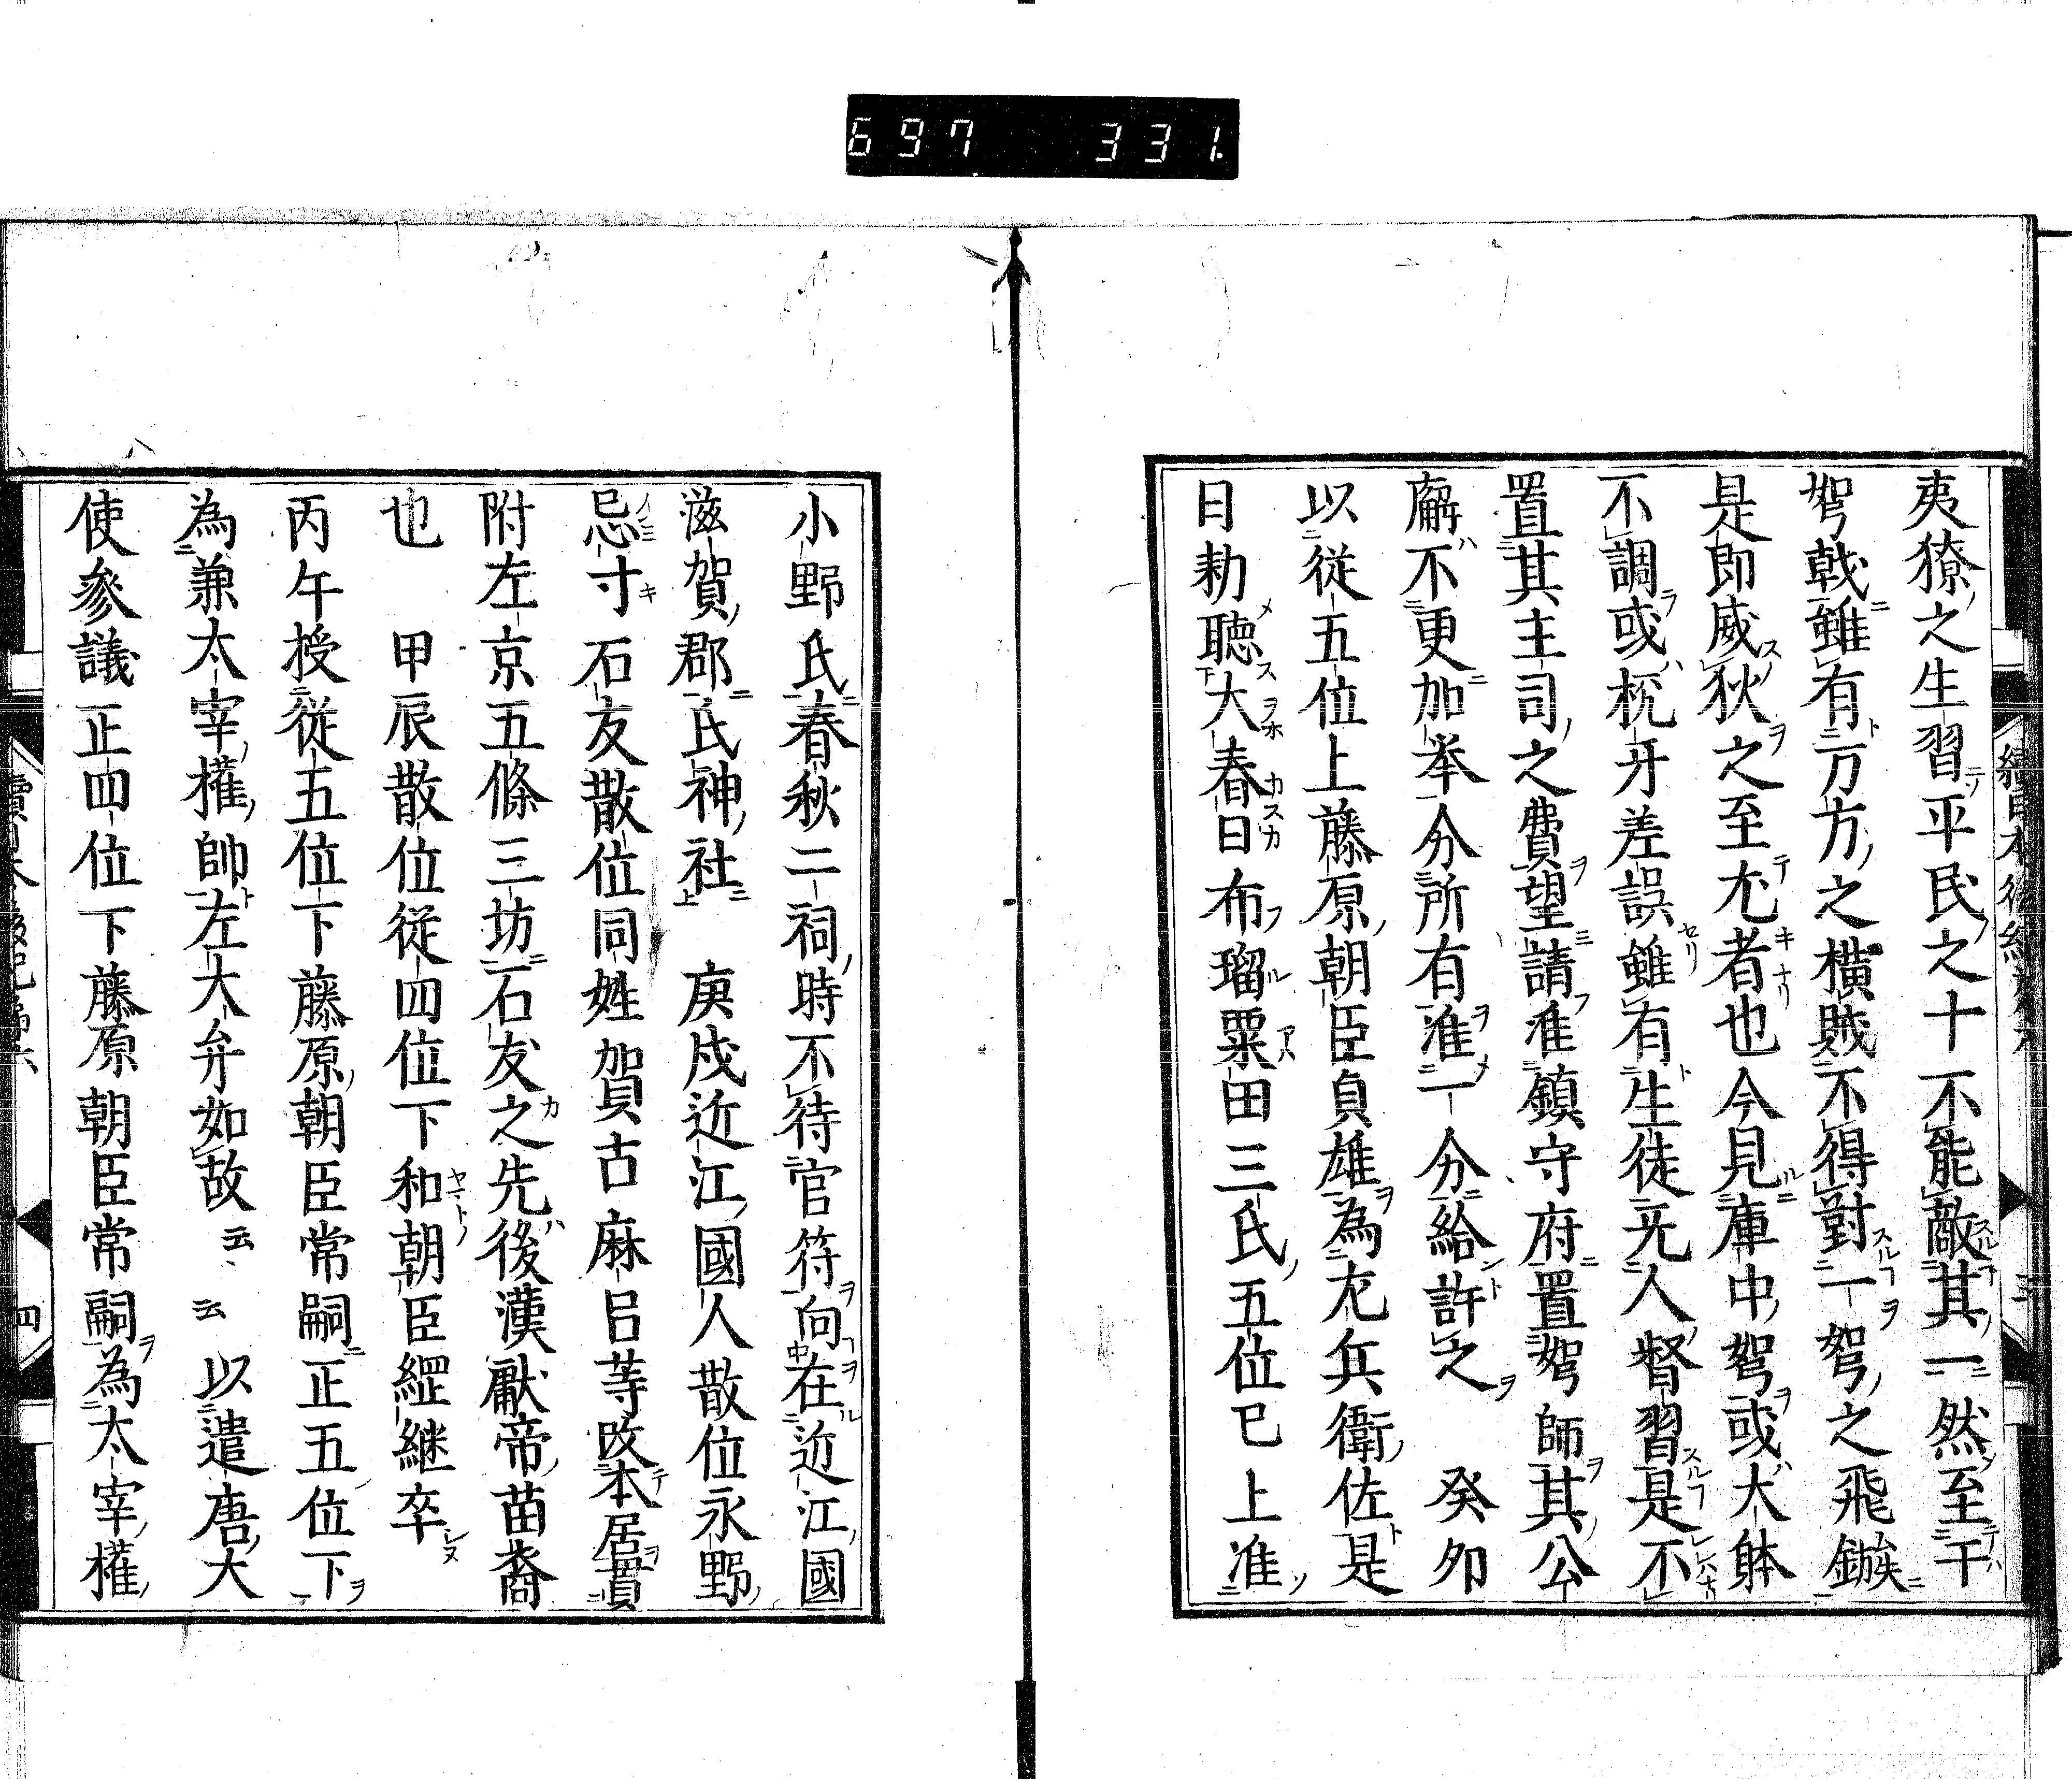 697 331.
夷獠之生習平民之十不能敵其一然至干
弩戟雖有万方之横賊不得對一弩之飛鏃
是即威狄之至尤者也今見庫中弩或大躰
不調或机牙差誤雖有生徒无人督習是不
置其主司之費望請准鎮守府置弩師其公
廨不更加挙分所有准一分給許之　癸夘
以従五位上藤原朝臣貞雄為左兵衛佐是
日勅聴大春日布瑠粟田三氏五位已上准
小野氏春秋二祠時不待官符向在近江國
滋賀郡氏神社　庚戌近江國人散位永野
忌寸石友散位同姓賀古麻呂等改本居貫
附左京五條三坊石友之先後漢獻帝苗裔
也　甲辰散位従四位下和朝臣縄継卒
丙午授従五位下藤原朝臣常嗣正五位下
為兼太宰權帥左大弁如故云云以遣唐大
使參議正四位下藤原朝臣常嗣為太宰權
四